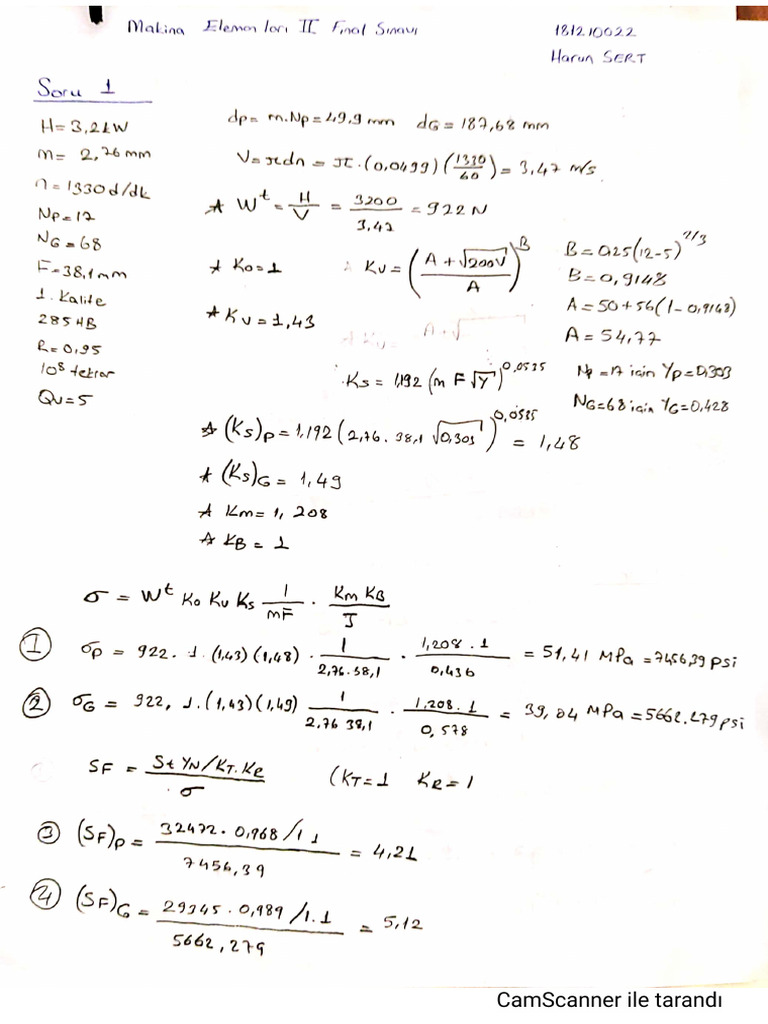 Makina Elemanları II Final Sınavı
181210022
Harun SERT
Soru 1
H=3,2kW
m= 2,76mm
n=1330d/dk
Np=17
NG=68
F=38,1mm
1. Kalite
285 HB
R=0,95
10^8 tekrar
Qv=5
dp= m.Np=49,9 mm dG= 187,68 mm
V=πdn = π.(0,0499)(1330/60) = 3,47 m/s
* W^t = H/V = 3200/3.47 = 922 N
* Ko=1
Kv= ((A+√200V)/A)^B
B=0,25(12-5)^2/3
B=0,9148
A=50+56(1-0,9148)
A=54,77
* Kv=1,43
Ks= 1,192 (m F √Y)^0,0535
Np=17 için Yp=0,303
NG=68 için YG=0,428
* (Ks)p = 1,192 (2,76. 38,1 √0,303)^0,0535 = 1,48
* (Ks)G = 1,49
* Km= 1,208
* KB = 1
σ = W^t Ko Kv Ks 1/mF . Km KB/J
① σp = 922. 1. (1,43)(1,48) . 1/2,76.38,1 . 1,208 . 1/0,436 = 51,41 MPa =7456,39 psi
② σG = 922, 1.(1,43)(1,49) 1/2,76 38,1 . 1,208. 1/0,578 = 39,04 MPa =5662.279 psi
SF = St YN/KT.KR / σ (KT=1 KR=1
③ (SF)p = 32472. 0,968/1 1 / 7456,39 = 4,21
④ (SF)G = 29345 . 0,989/1.1 / 5662,279 = 5,12
CamScanner ile tarandı